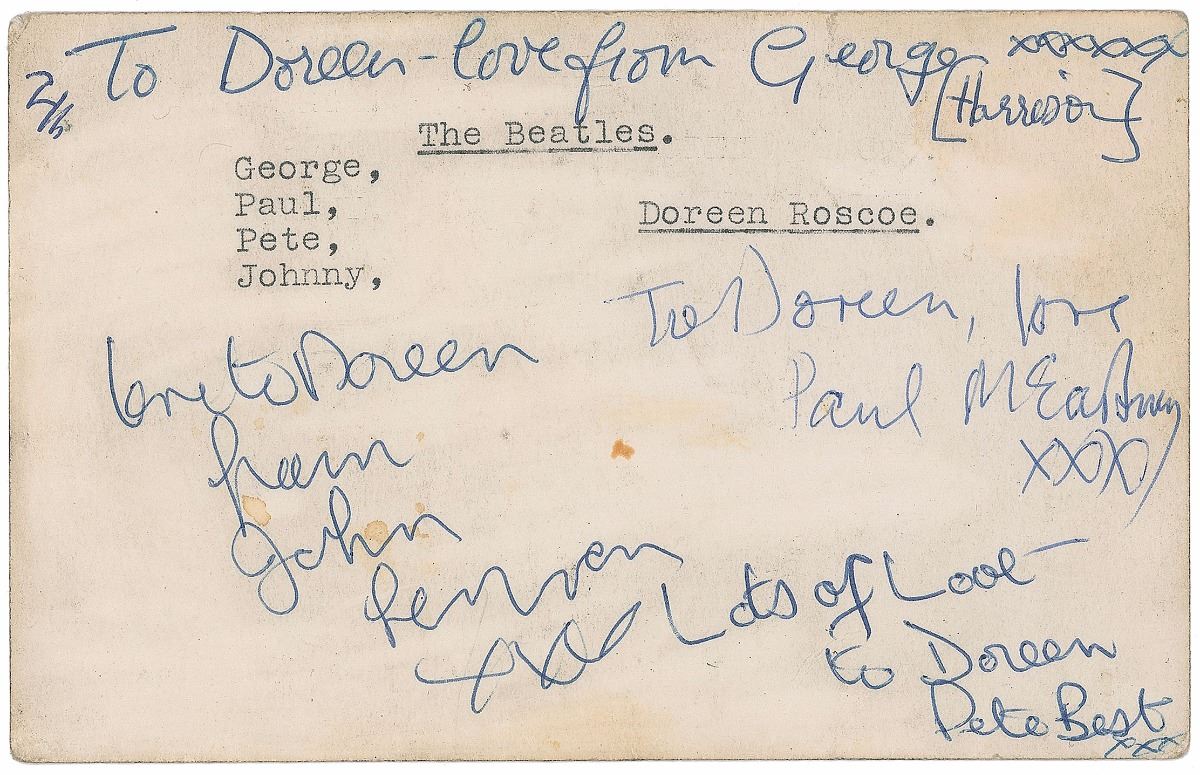 To Doreen - love from George xxxxxx
[Harrison]
2/5
The Beatles.
George,
Paul,
Pete,
Johnny,
Doreen Roscoe.
To Doreen, love
Paul McCartney
xxx
love to Doreen
from
John
Lennon
xxx
Lots of Love -
to Doreen
Pete Best
xxx